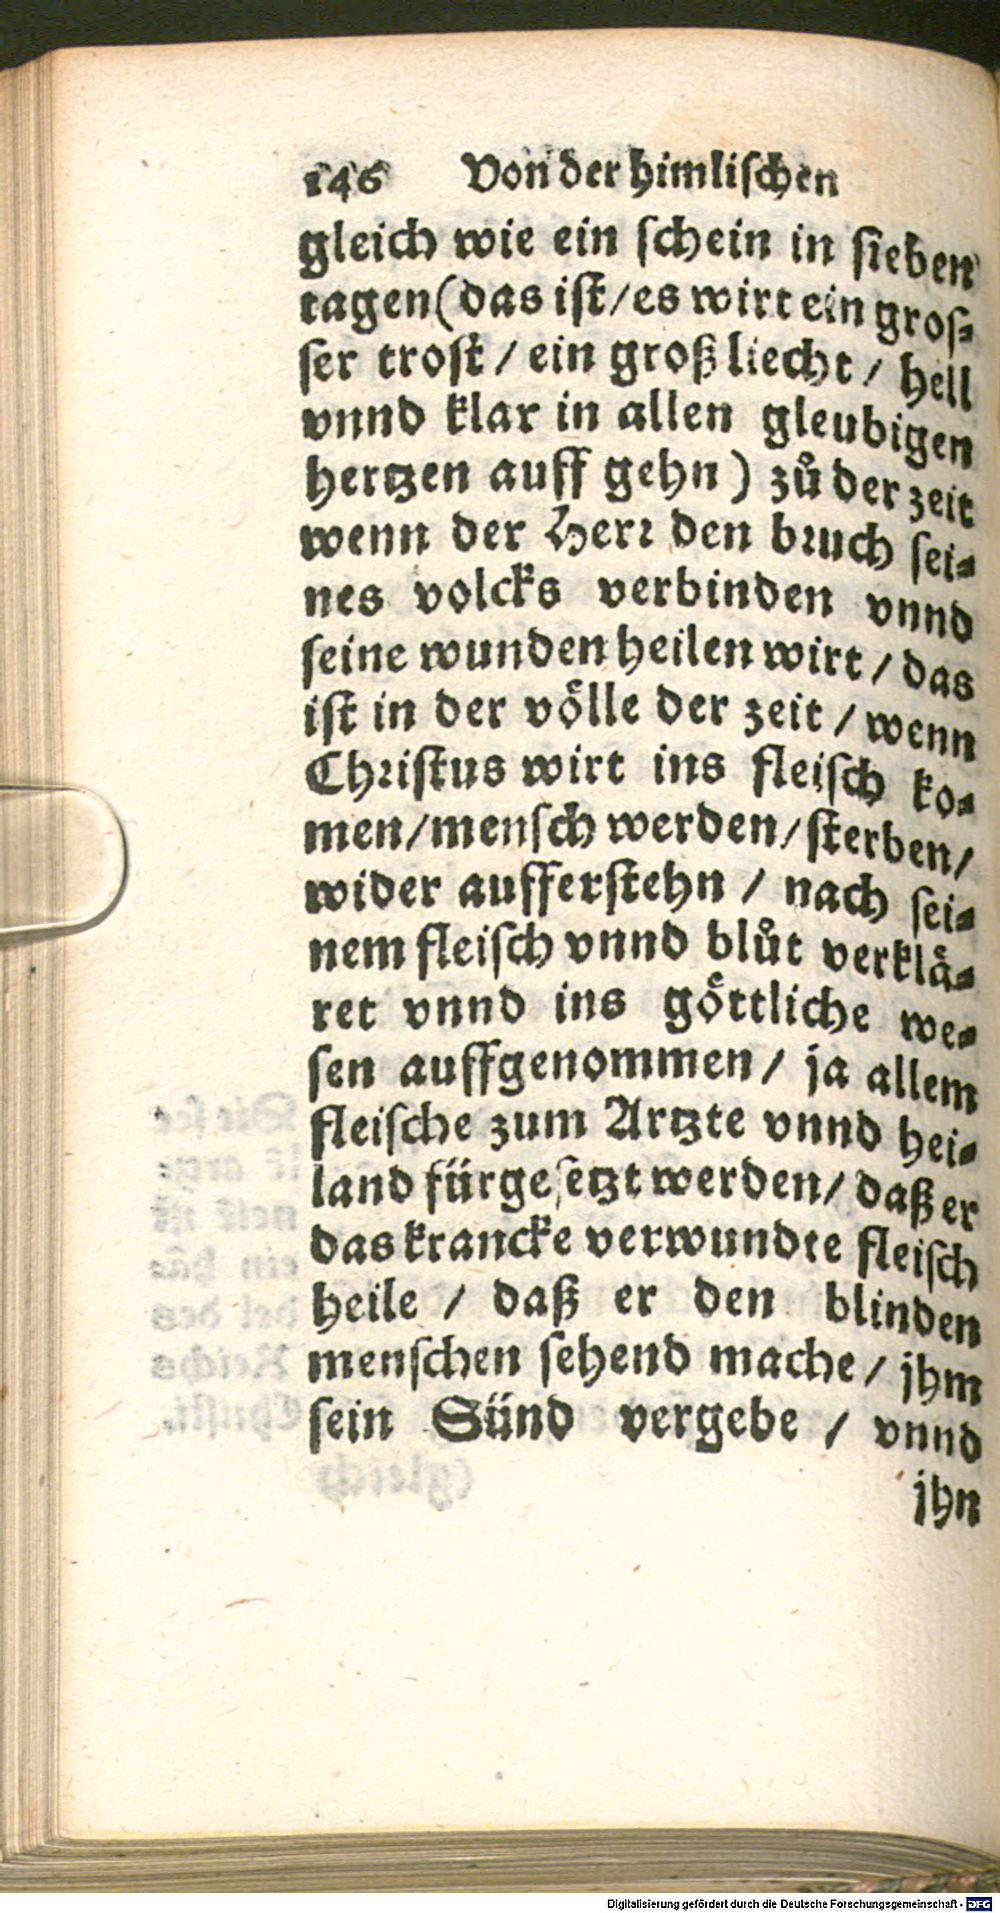 146 Von der himlischen
gleich wie ein schein in sieben
tagen (das ist / es wirt ein gros⸗
ser trost / ein groß liecht / hell
vnnd klar in allen gleubigen
hertzen auff gehn) zů der zeit
wenn der Herr den bruch sei⸗
nes volcks verbinden vnnd
seine wunden heilen wirt / das
ist in der voͤlle der zeit / wenn
Christus wirt ins fleisch ko⸗
men / mensch werden / sterben /
wider aufferstehn / nach sei⸗
nem fleisch vnnd blůt verklaͤ⸗
ret vnnd ins goͤttliche we⸗
sen auffgenommen / ja allem
fleische zum Artzte vnnd hei⸗
land fürgesetzt werden / daß er
das krancke verwundte fleisch
heile / daß er den blinden
menschen sehend mache / jhm
sein Sünd vergebe / vnnd
jhn
Digitalisierung gefördert durch die Deutsche Forschungsgemeinschaft - DFG